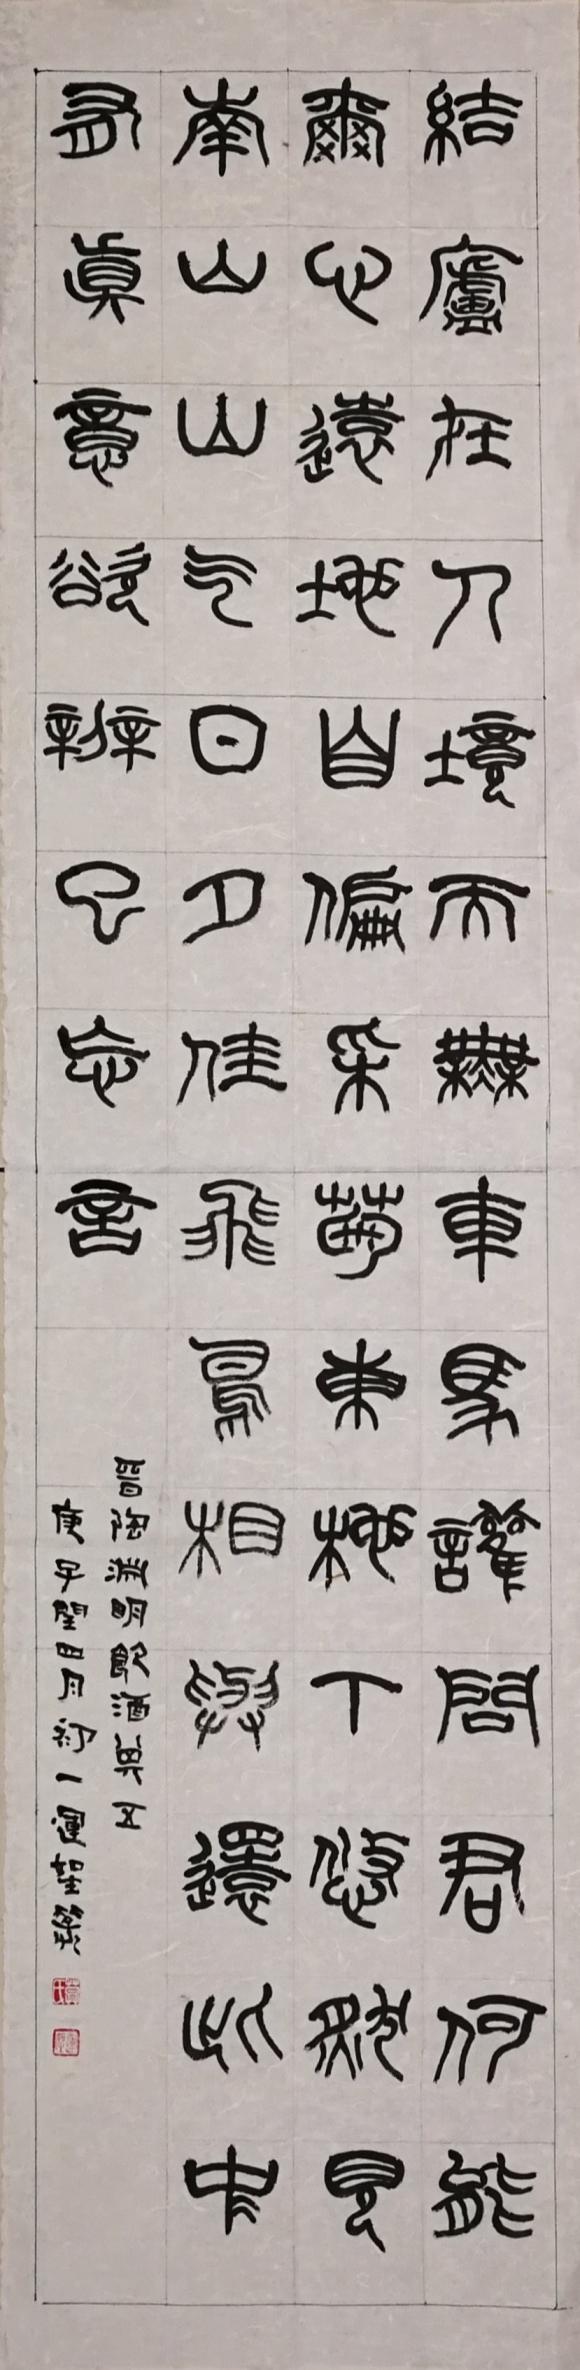 結廬在人境而無車馬讙問君何能
爾心遠地自偏采菊東杝下悠然見
南山山气日夕佳飛鳥相與還此中
有眞意欲辨已忘言
晉陶淵明飲酒其五
庚子閏四月初一運